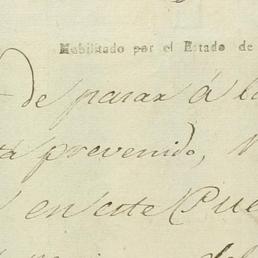 Habilitado por el Estado de
de pasar á la
prevenido,
en este Pue